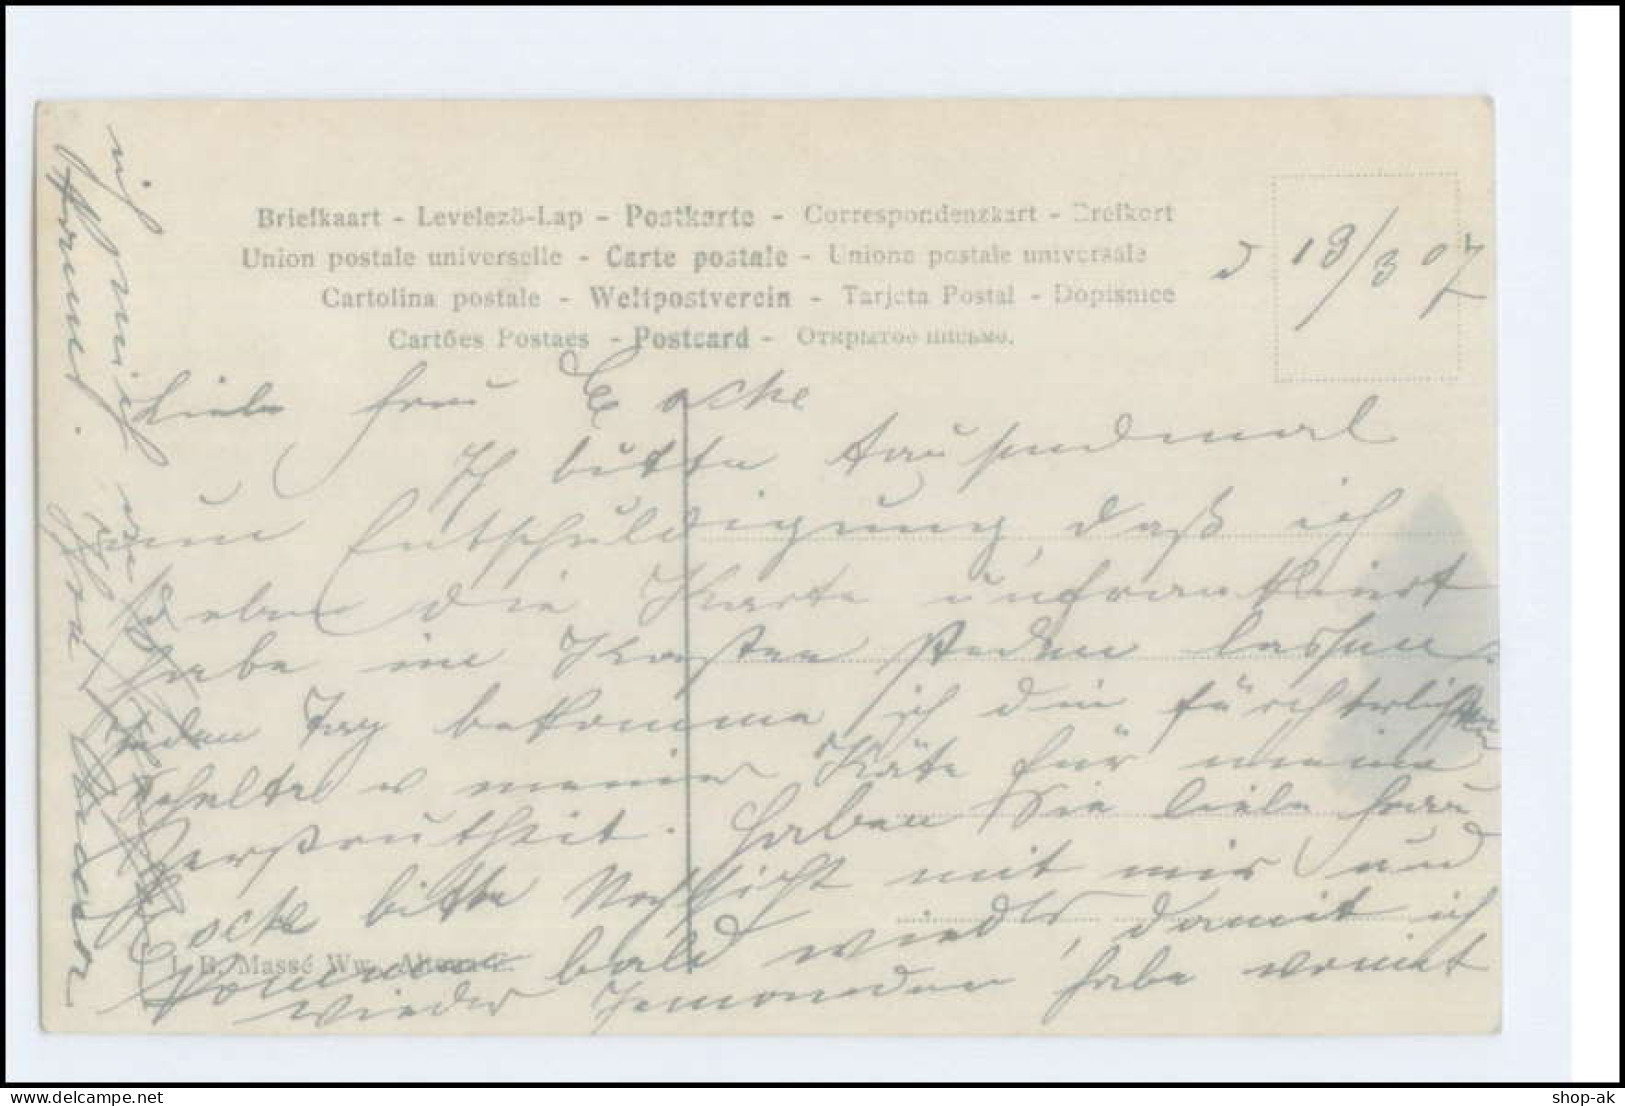 Briefkaart - Levelező-Lap - Postkarte - Correspondenzkart - Brefkort
Union postale universelle - Carte postale - Unione postale universale
Cartolina postale - Weltpostverein - Tarjeta Postal - Dopisnice
Cartões Postaes - Postcard - Открытое письмо.
d 13/3 07
Liebe Frau Eocke
Ich bitte tausendmal
um Entschuldigung, daß ich
eben die Karte unfrankiert
habe im Kasten stecken lassen.
jeden Tag bekomme ich den fürchterlichsten
Schelte v meiner Käte für meine
Haben Sie liebe Frau
Eocke bitte Nachsicht mit mir und
kommen bald wieder, damit ich
wieder Jemanden habe womit
ich mich
J. B. Massé Ww., Altona-E.